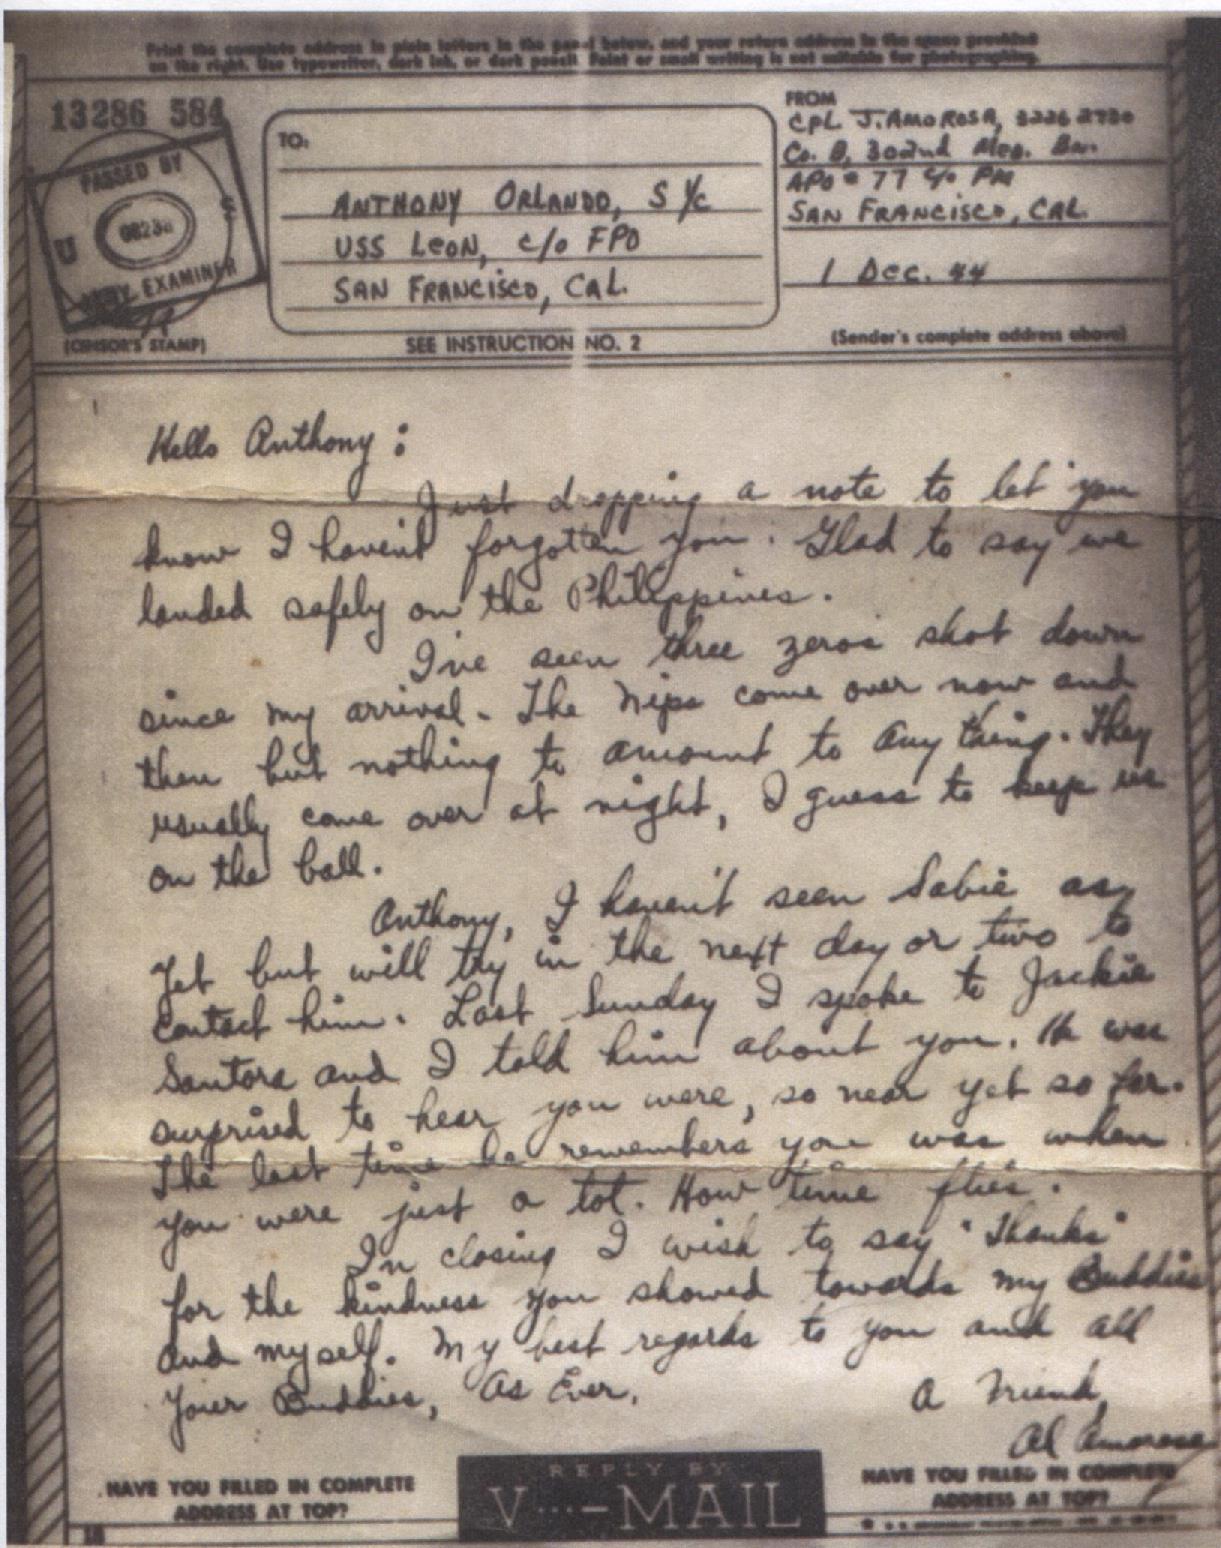 Print the complete address in plain letters in the panel below, and your return address in the space provided
on the right. Use typewriter, dark ink, or dark pencil. Faint or small writing is not suitable for photographing.
13286 584
PASSED BY
U S
ARMY EXAMINER
(CENSOR'S STAMP)
TO:
ANTHONY ORLANDO, S 1/c
USS LEON, c/o FPO
SAN FRANCISCO, CAL.
SEE INSTRUCTION NO. 2
FROM
CPL J. AMOROSA,
Co. B, 302nd Bn.
APO # 77 c/o PM
SAN FRANCISCO, CAL.
1 Dec. 44
(Sender's complete address above)
Hello Anthony :
Just dropping a note to let you
know I haven't forgotten you. Glad to say we
landed safely on the Philippines.
I've seen three zeros shot down
since my arrival. The Nips come over now and
then but nothing to amount to any thing. They
usually come over at night, I guess to keep us
on the ball.
Anthony, I haven't seen Sabie as
yet but will try in the next day or two to
contact him. Last Sunday I spoke to Jackie
Santora and I told him about you. He was
surprised to hear you were, so near yet so far.
The last time he remembers you was when
you were just a tot. How time flies.
In closing I wish to say "Thanks"
for the kindness you showed towards my Buddies
and myself. My best regards to you and all
your Buddies, As Ever,
A Friend,
Al Amorosa
HAVE YOU FILLED IN COMPLETE
ADDRESS AT TOP?
REPLY BY
V···—MAIL
HAVE YOU FILLED IN COMPLETE
ADDRESS AT TOP?